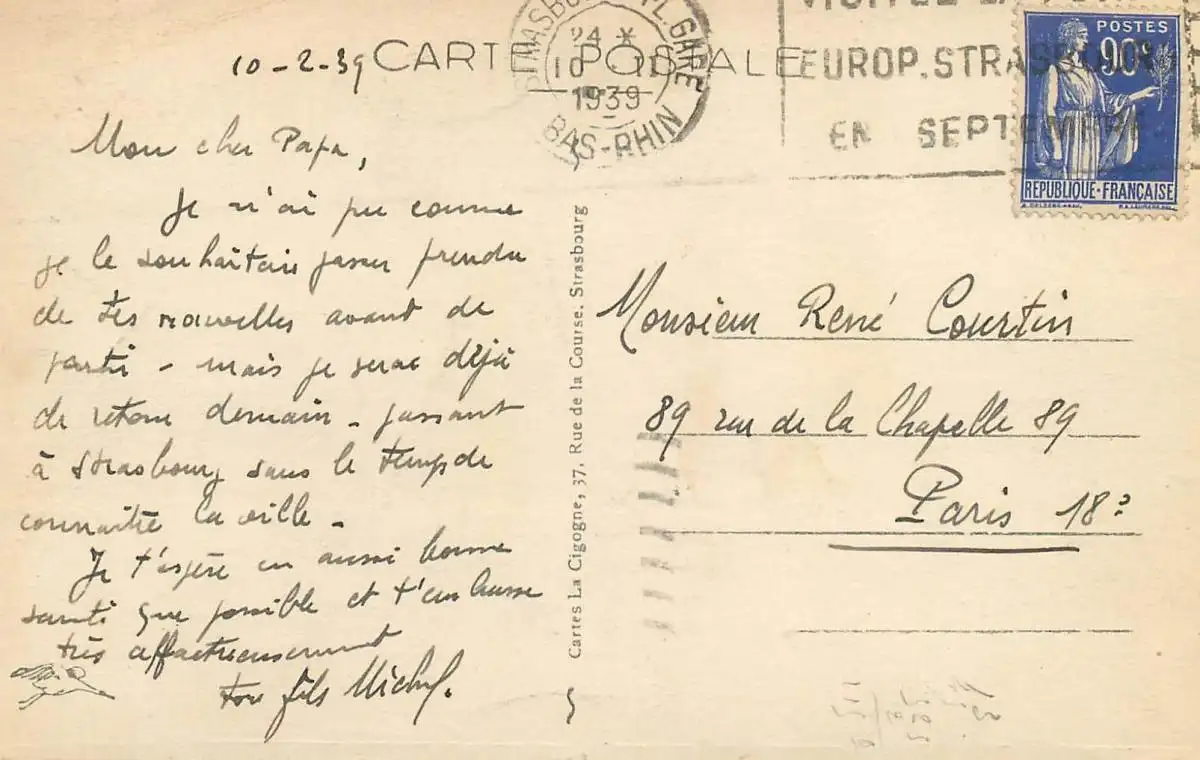 10-2-39
CARTE POSTALE
STRASBOURG PL. GARE
24 *
10 II
1939
BAS-RHIN
EUROP. STRASBOURG
EN SEPTEMBRE
POSTES
90c
REPUBLIQUE·FRANÇAISE
Mon cher Papa,
Je n'ai pu comme
je le souhaitais passer prendre
de tes nouvelles avant de
partir - mais je serai déjà
de retour demain - passant
à Strasbourg sans le temps de
connaître la ville -
Je t'espère en aussi bonne
santé que possible et t'embrasse
très affectueusement
ton fils Michel.
Cartes La Cigogne, 37, Rue de la Course, Strasbourg
Monsieur René Courtin
89 rue de la Chapelle 89
Paris 18e